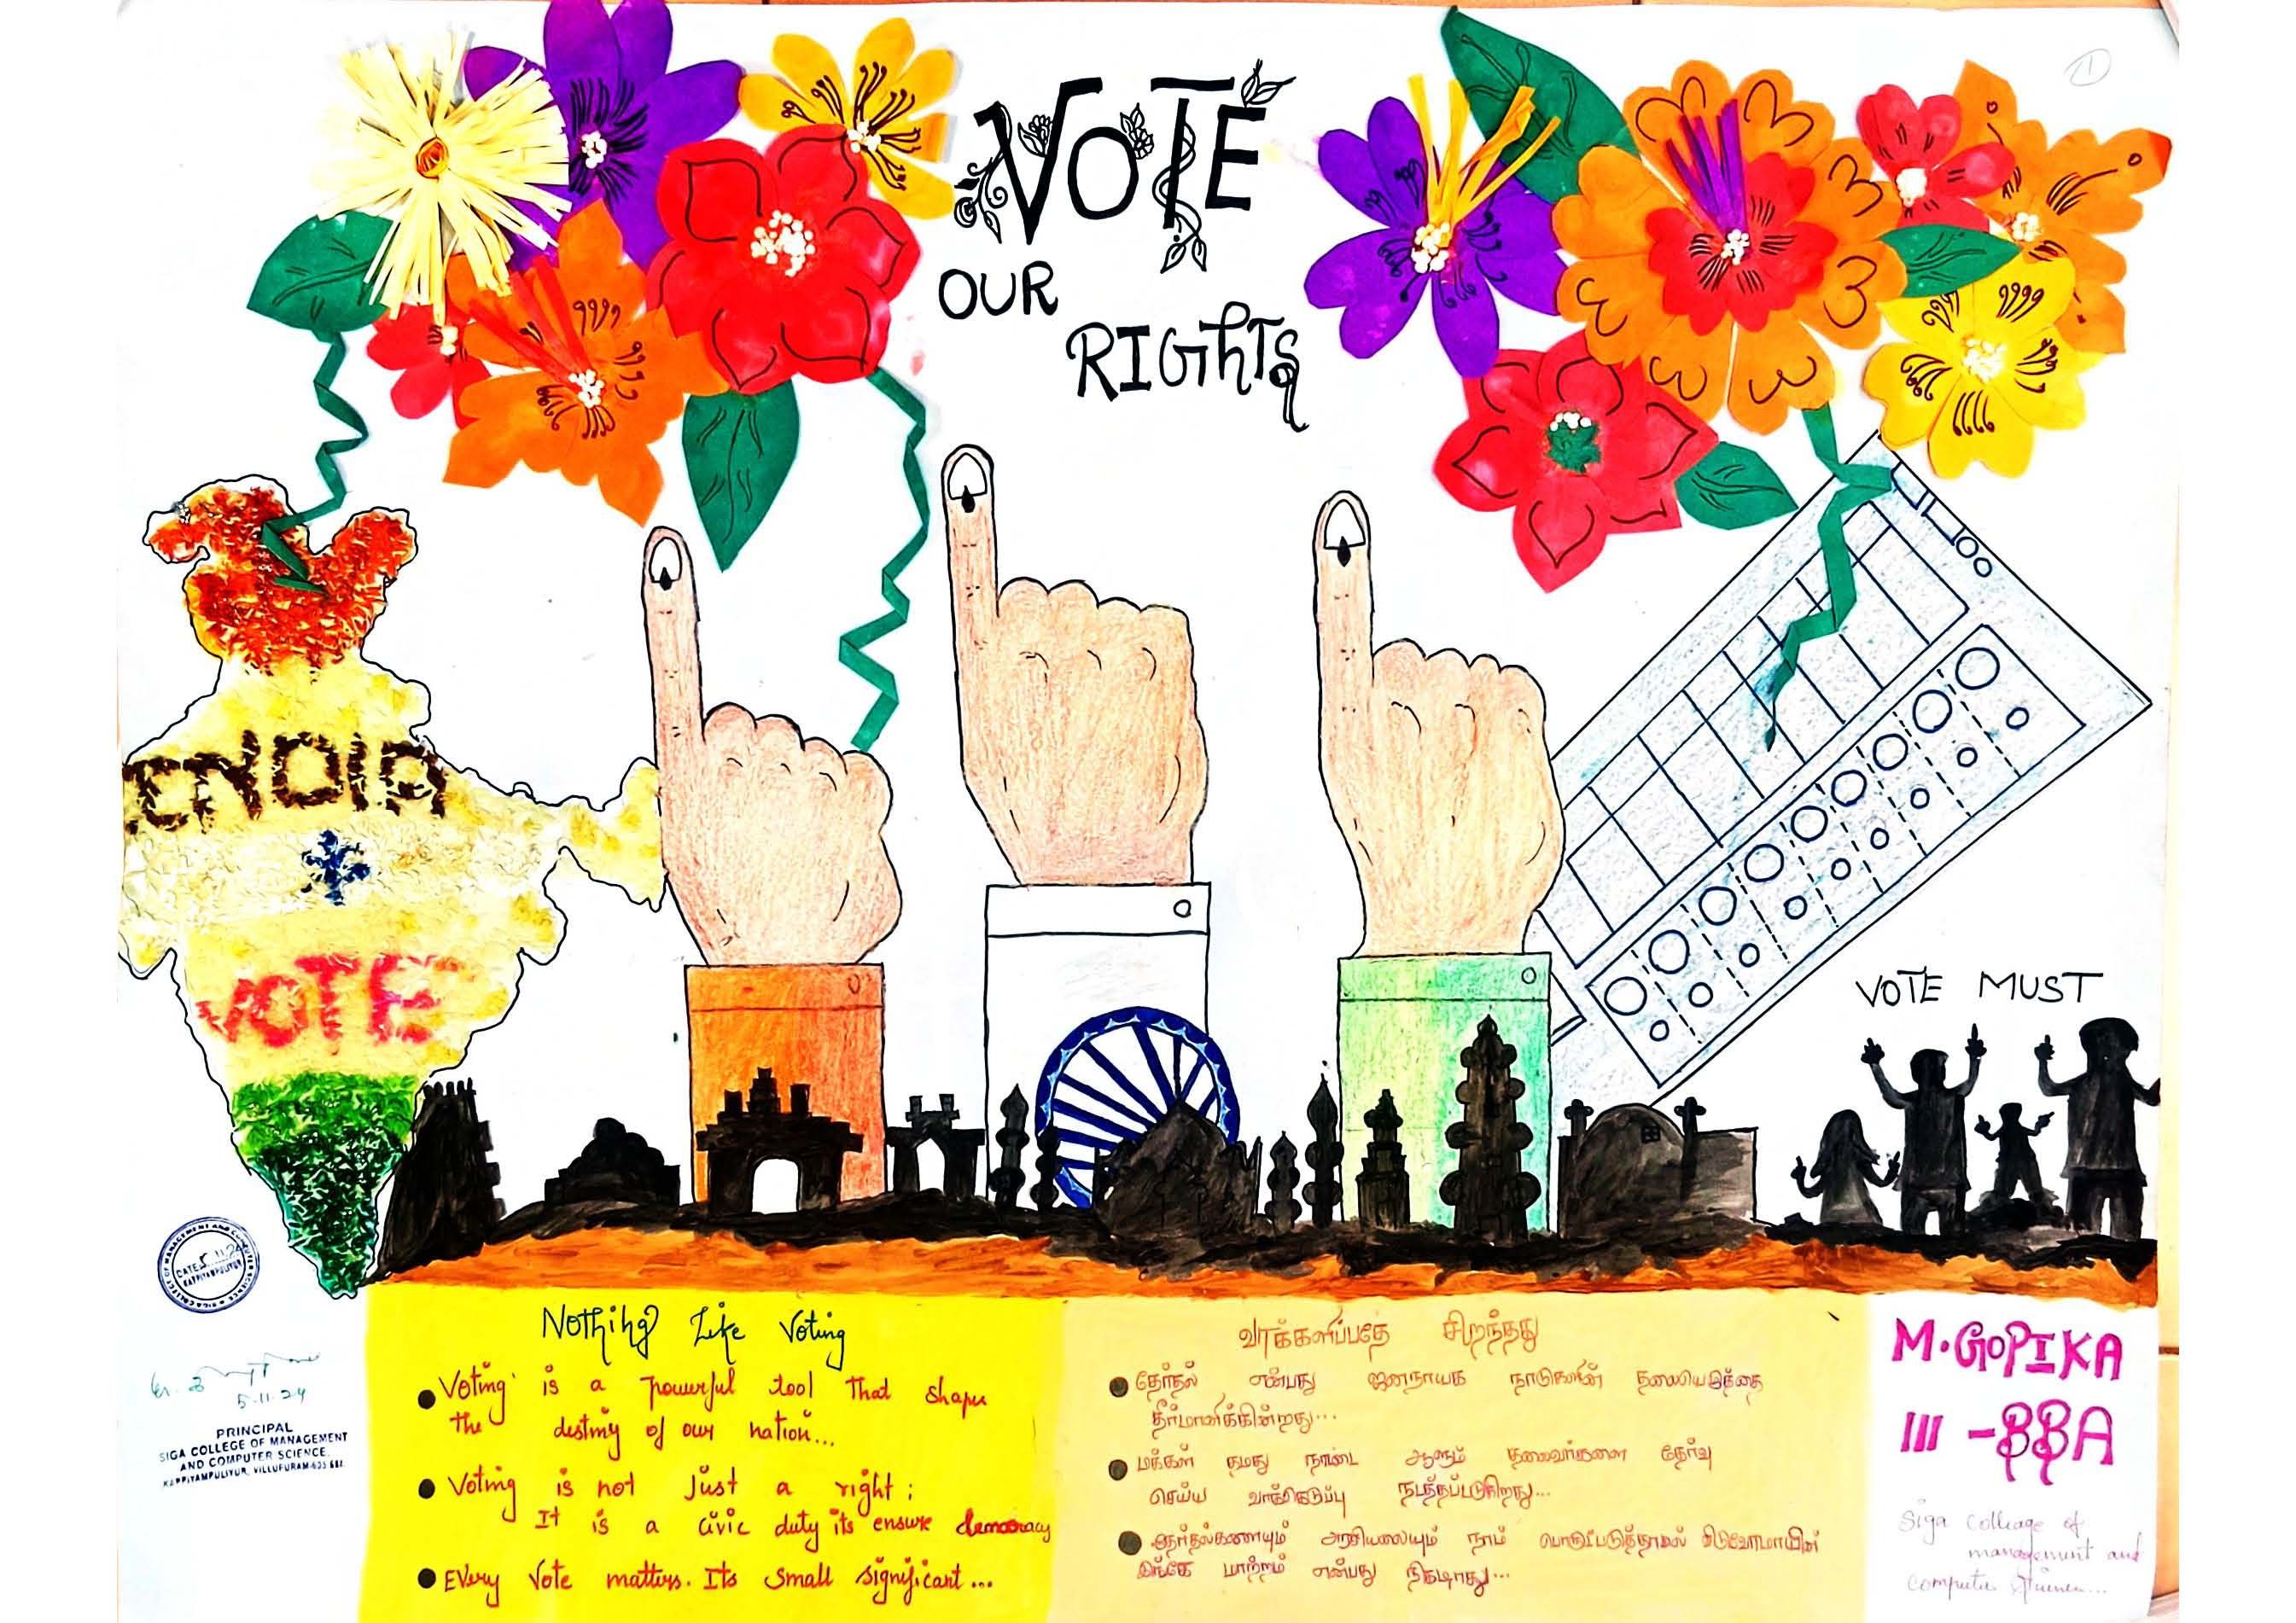 VOTE
OUR
RIGHTS
INDIA
VOTE
VOTE MUST
Nothing Like Voting
Voting is a powerful tool that shapes
the destiny of our nation...
Voting is not just a right;
It is a civic duty its ensure democracy
Every Vote matters. Its small significant...
வாக்களிப்பதே சிறந்தது
தேர்தல் என்பது ஜனநாயக நாடுகளின் தலையெழுத்தை
தீர்மானிக்கின்றது...
மக்கள் தமது நாட்டை ஆளும் தலைவர்களை தேர்வு
செய்ய வாக்கெடுப்பு நடத்தப்படுகிறது...
அரசியலையும் நாம்
இங்கே மாற்றம் என்பது நிகழாது...
M. GOPIKA
III - BBA
Siga Colleage of
management and
computer
5-11-24
PRINCIPAL
SIGA COLLEGE OF MANAGEMENT
AND COMPUTER SCIENCE,
KAPPIYAMPULIYUR, VILLUPURAM-605 601.
SIGA COLLEGE OF MANAGEMENT AND COMPUTER SCIENCE
DATE 5.11.24
KAPPIYAMPULIYUR
1